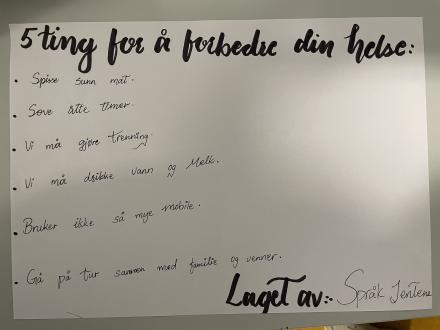 5 ting for å forbedre din helse:
• Spise sunn mat.
• Sove åtte timer.
• Vi må gjøre trenning.
• Vi må drikke vann og Melk.
• Bruker ikke så mye mobile.
• Gå på tur sammen med familie og venner.
Laget av:- Språk Jentene